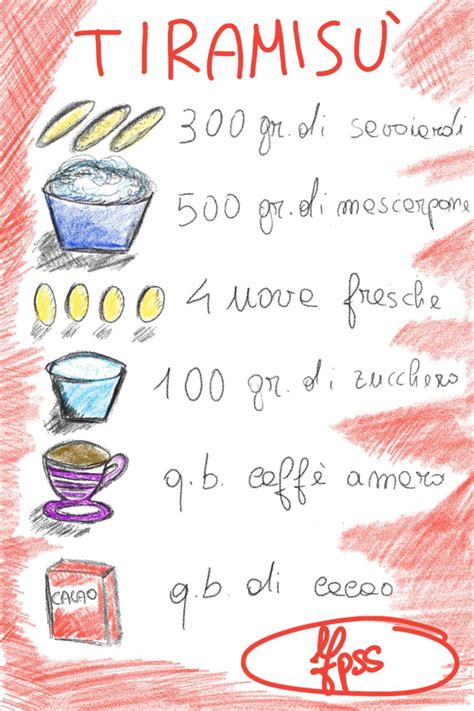 TIRAMISÙ
300 gr. di savoiardi
500 gr. di mascarpone
4 uova fresche
100 gr. di zucchero
q.b. caffè amaro
CACAO
q.b. di cacao
ffpss